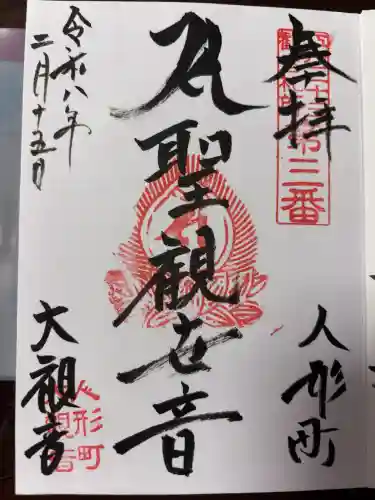 奉拝
第三番
人形町
聖観世音
令和八年
二月十五日
大観音
人形町
大観音